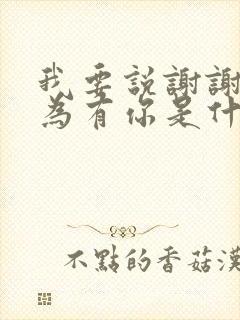 我要説謝謝
為有你是什
不點的香菇漢